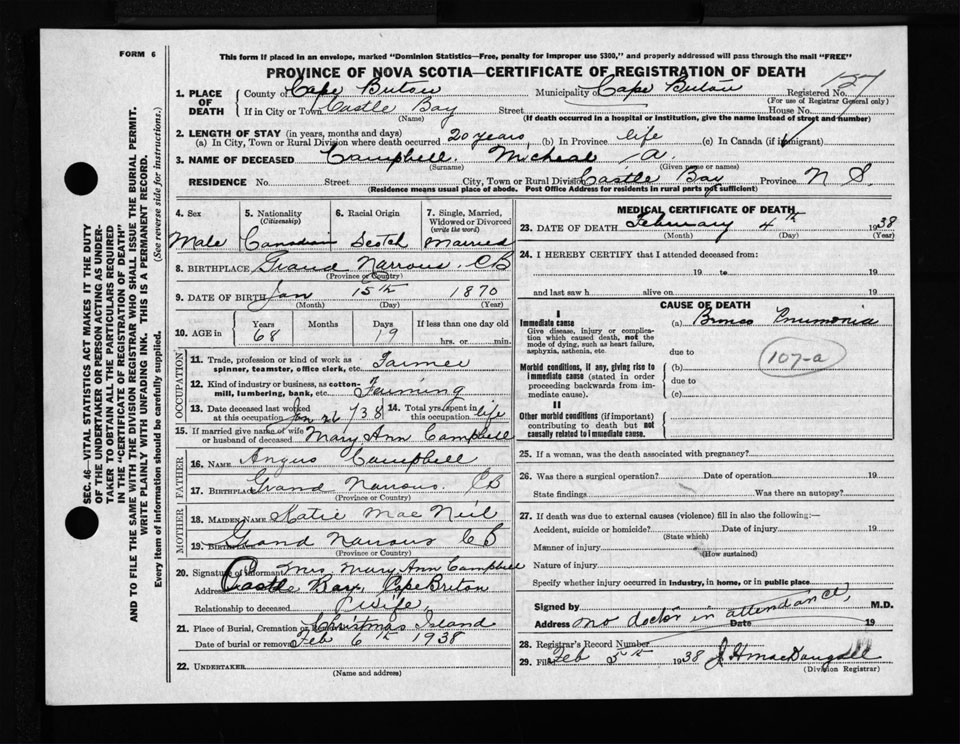 FORM 6
This form if placed in an envelope, marked "Dominion Statistics—Free, penalty for improper use $300," and properly addressed will pass through the mail "FREE"
PROVINCE OF NOVA SCOTIA—CERTIFICATE OF REGISTRATION OF DEATH
SEC. 46—VITAL STATISTICS ACT MAKES IT THE DUTY
OF THE UNDERTAKER OR PERSON ACTING AS UNDER-
TAKER TO OBTAIN ALL THE PARTICULARS REQUIRED
IN THE "CERTIFICATE OF REGISTRATION OF DEATH"
AND TO FILE THE SAME WITH THE DIVISION REGISTRAR WHO SHALL ISSUE THE BURIAL PERMIT.
WRITE PLAINLY WITH UNFADING INK. THIS IS A PERMANENT RECORD.
Every item of information should be carefully supplied. (See reverse side for instructions.)
1. PLACE OF DEATH County of Cape Breton Municipality of Cape Breton Registered No. 127
(For use of Registrar General only)
If in City or Town Castle Bay Street House No.
(Name) (If death occurred in a hospital or institution, give the name instead of street and number)
2. LENGTH OF STAY (in years, months and days)
(a) In City, Town or Rural Division where death occurred 20 years (b) In Province life (c) In Canada (if immigrant)
3. NAME OF DECEASED Campbell. Micheal A.
(Surname) (Given name or names)
RESIDENCE No. Street City, Town or Rural Division Castle Bay Province N S.
(Residence means usual place of abode. Post Office Address for residents in rural parts not sufficient)
4. Sex 5. Nationality (Citizenship) 6. Racial Origin 7. Single, Married, Widowed or Divorced (write the word)
Male Canadian Scotch Married
8. BIRTHPLACE Grand Narrous. CB
(Province or Country)
9. DATE OF BIRTH Jan 15th 1870
(Month) (Day) (Year)
10. AGE in Years Months Days If less than one day old
68 19 hrs. or min.
OCCUPATION
11. Trade, profession or kind of work as spinner, teamster, office clerk, etc. Farmer
12. Kind of industry or business, as cotton-mill, lumbering, bank, etc. Farming
13. Date deceased last worked at this occupation Jan 26 1938 14. Total yrs. spent in this occupation life
15. If married give name of wife or husband of deceased Mary Ann Campbell
FATHER
16. NAME Angus Campbell
17. BIRTHPLACE Grand Narrous. CB
(Province or Country)
MOTHER
18. MAIDEN NAME Katie MacNeil
19. BIRTHPLACE Grand Narrous CB
(Province or Country)
20. Signature of informant Mrs Mary Ann Campbell
Address Castle Bay, Cape Breton
Relationship to deceased Wife,
21. Place of Burial, Cremation or Removal Christmas Island
Date of burial or removal Feb 6th 1938
22. UNDERTAKER
(Name and address)
MEDICAL CERTIFICATE OF DEATH
23. DATE OF DEATH February 4th 1938
(Month) (Day) (Year)
24. I HEREBY CERTIFY that I attended deceased from:
19 to 19
and last saw h alive on 19
CAUSE OF DEATH
I
Immediate cause (a) Bronco Pnumonia
Give disease, injury or complication which caused death, not the mode of dying, such as heart failure, asphyxia, asthenia, etc.
due to
107-a
Morbid conditions, if any, giving rise to immediate cause (stated in order proceeding backwards from immediate cause).
(b)
due to
(c)
II
Other morbid conditions (if important) contributing to death but not causally related to immediate cause.
25. If a woman, was the death associated with pregnancy?
26. Was there a surgical operation? Date of operation 19
State findings Was there an autopsy?
27. If death was due to external causes (violence) fill in also the following:—
Accident, suicide or homicide? Date of injury 19
(State which)
Manner of injury
(How sustained)
Nature of injury
Specify whether injury occurred in industry, in home, or in public place
Signed by M.D.
Address no doctor in attendance, Date 19
28. Registrar's Record Number
29. Filed Feb 5th 1938 J H MacDougall
(Division Registrar)